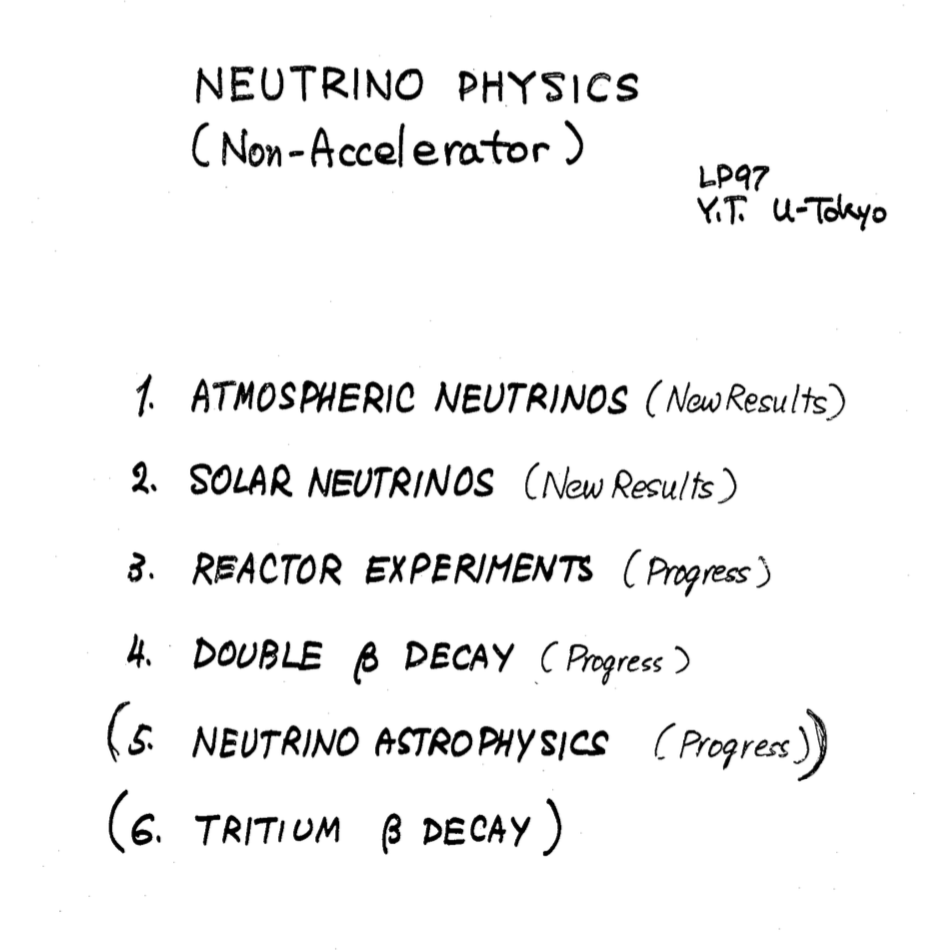 NEUTRINO PHYSICS
(Non-Accelerator)
LP97
Y.T. U-Tokyo
1. ATMOSPHERIC NEUTRINOS (New Results)
2. SOLAR NEUTRINOS (New Results)
3. REACTOR EXPERIMENTS (Progress)
4. DOUBLE β DECAY (Progress)
(5. NEUTRINO ASTROPHYSICS (Progress))
(6. TRITIUM β DECAY)